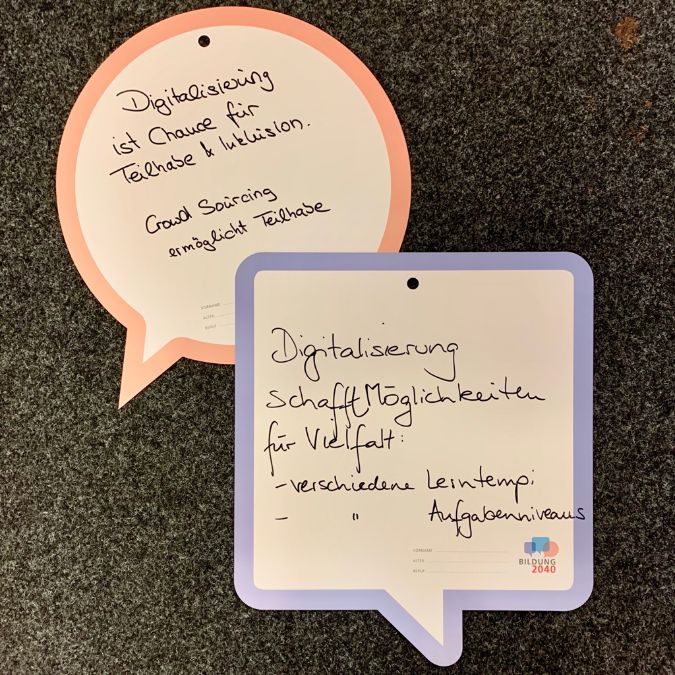 Digitalisierung
ist Chance für
Teilhabe & Inklusion.
Crowd Sourcing
ermöglicht Teilhabe
VORNAME
ALTER
BERUF
Digitalisierung
schafft Möglichkeiten
für Vielfalt:
- verschiedene Lerntempi
- " Aufgabenniveaus
VORNAME
ALTER
BERUF
BILDUNG
2040